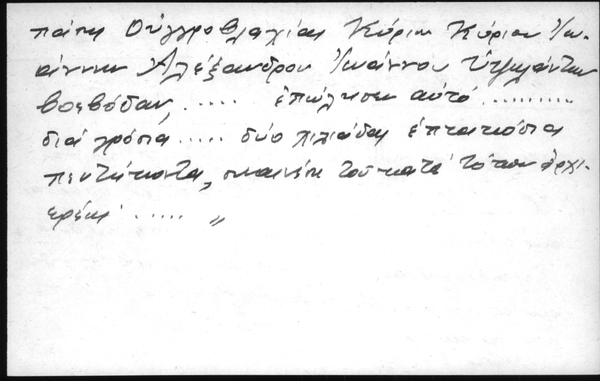 πάσης Οὐγγροβλαχίας Κύριον Κύριον Ἰω-
άννην Ἀλέξανδρον Ἰωάννου Ὑψηλάντην
βοεβόδαν, ..... ἐπώλησεν αὐτό ..........
διά γρόσια ..... δύο χιλιάδας ἑπτακόσια
πεντήκοντα, συναινέσει τοῦ κατά τόπον ἀρχι-
ερέως ..... „